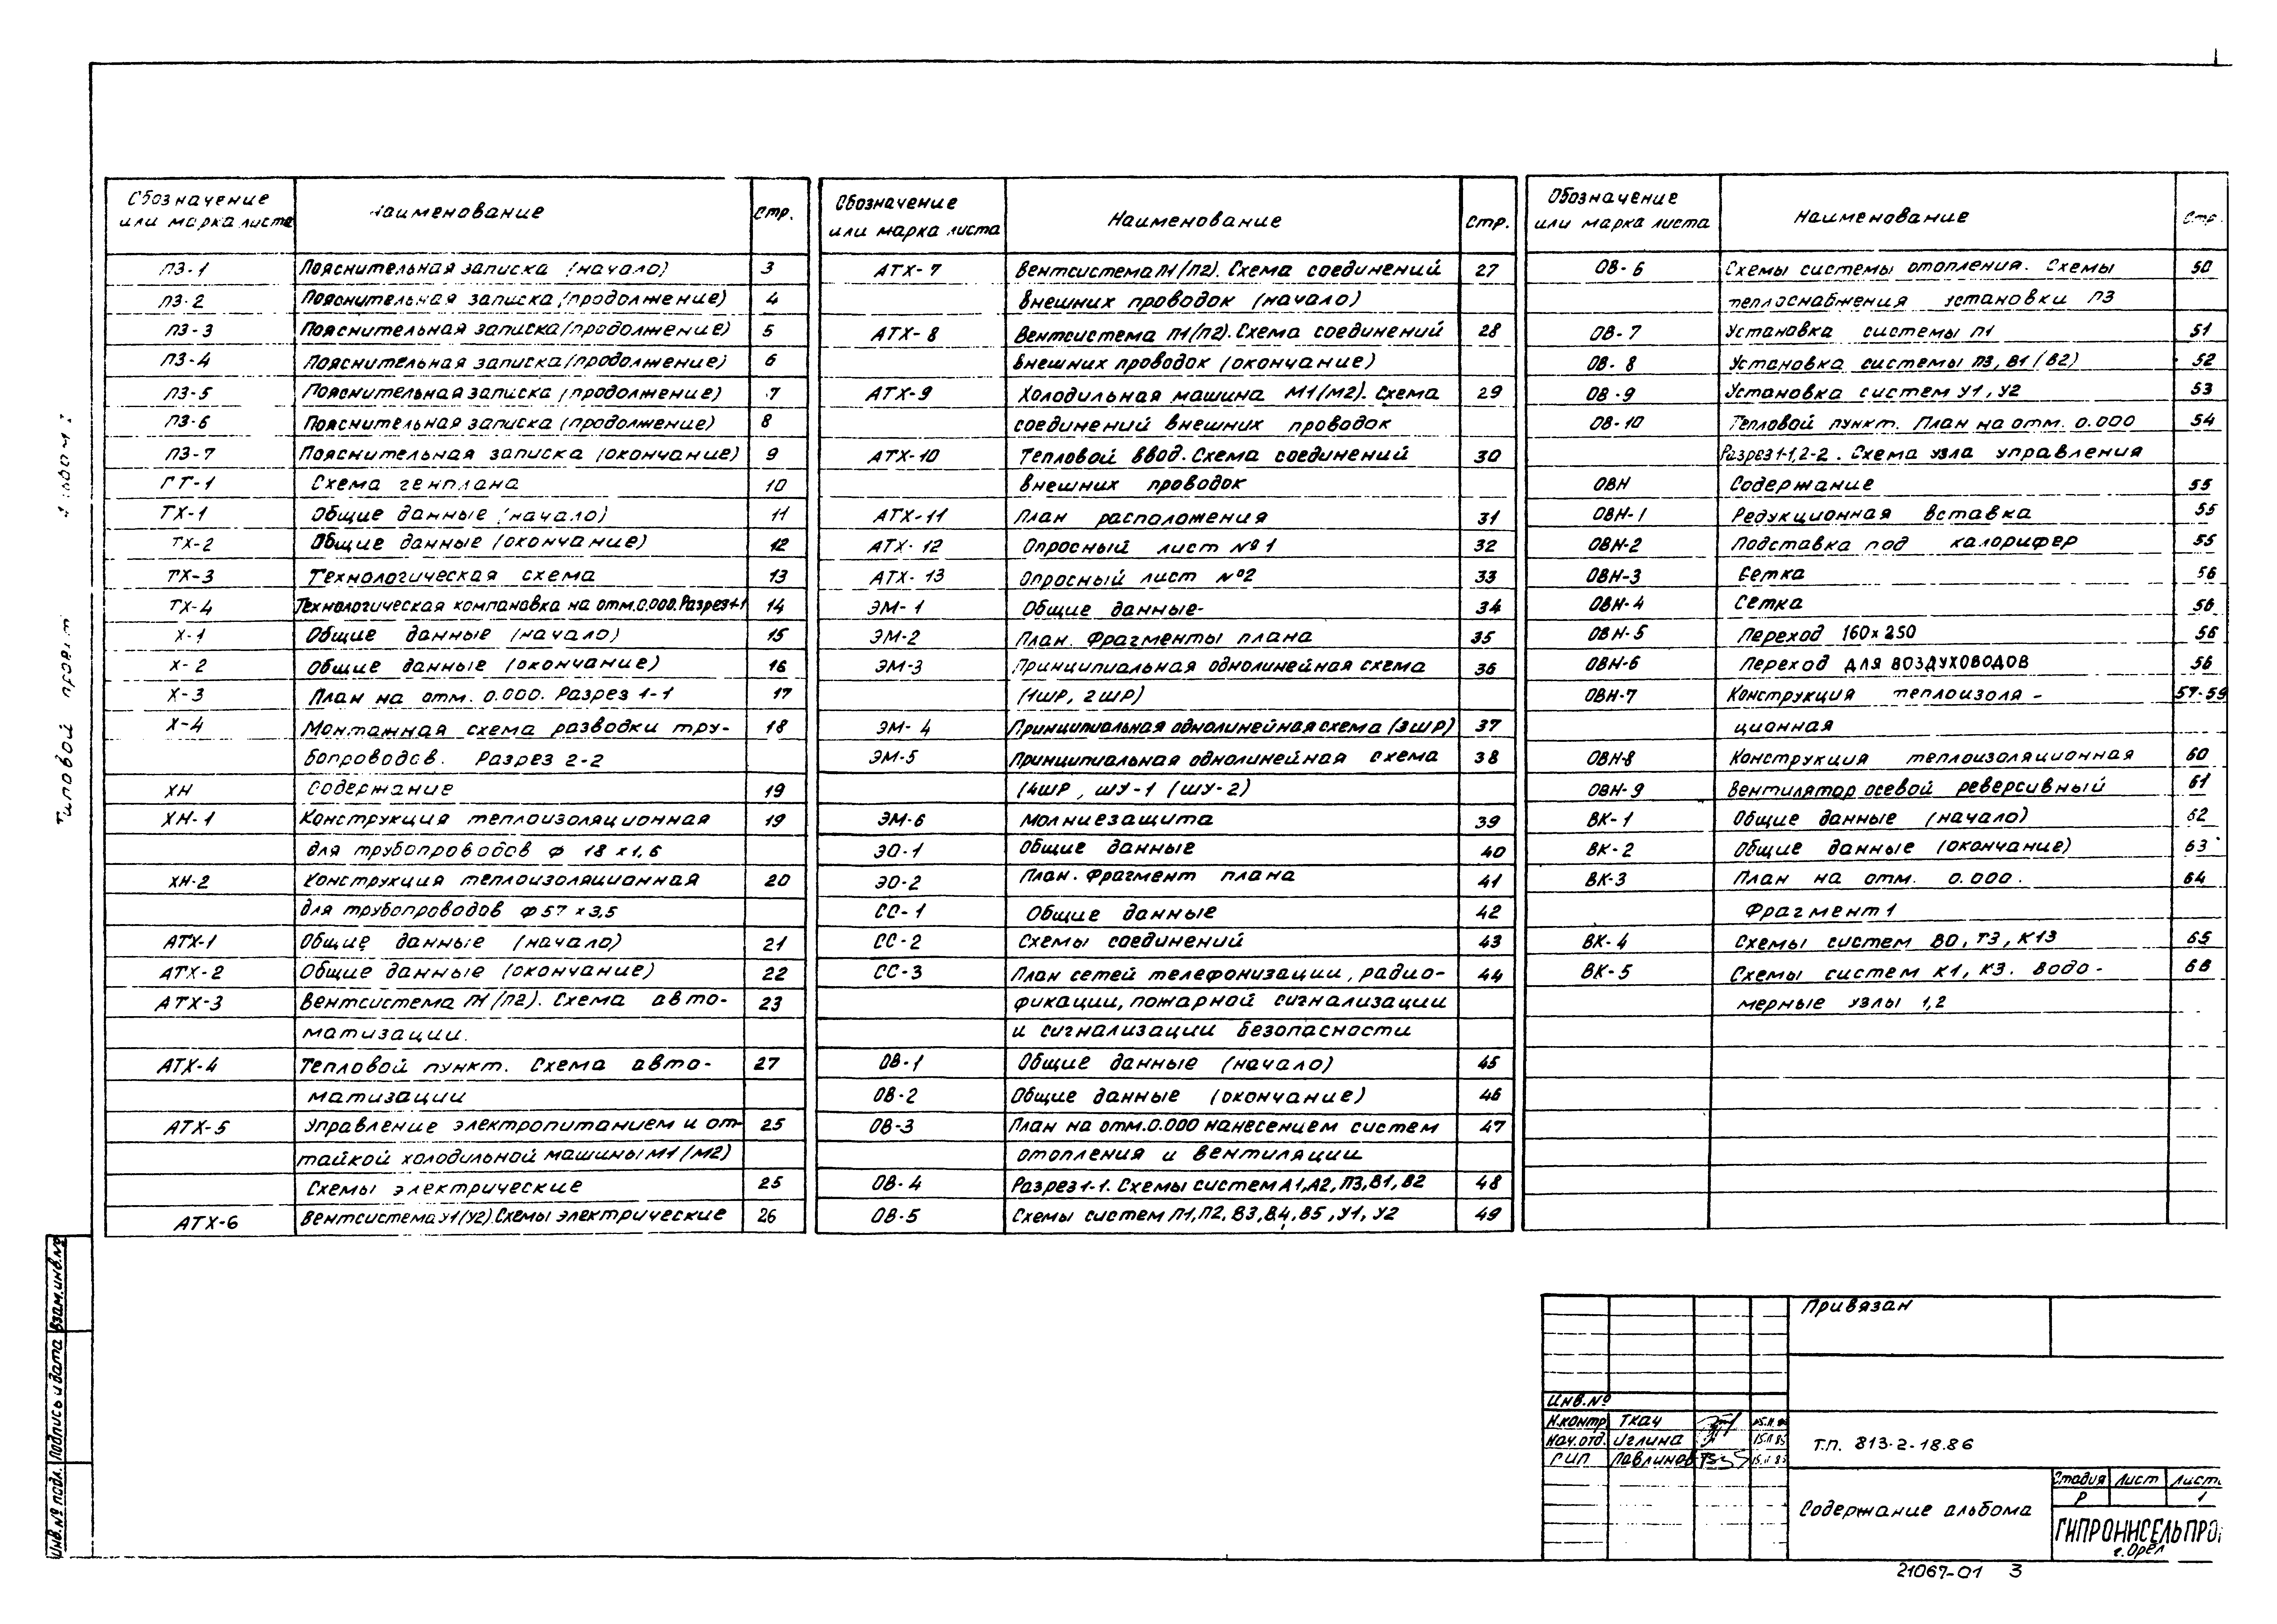 Обозначение или марка листа | Наименование | стр.
ПЗ-1 Пояснительная записка (начало) 3
ПЗ-2 Пояснительная записка (продолжение) 4
ПЗ-3 Пояснительная записка (продолжение) 5
ПЗ-4 Пояснительная записка (продолжение) 6
ПЗ-5 Пояснительная записка (продолжение) 7
ПЗ-6 Пояснительная записка (продолжение) 8
ПЗ-7 Пояснительная записка (окончание) 9
ГТ-1 Схема генплана 10
ТХ-1 Общие данные (начало) 11
ТХ-2 Общие данные (окончание) 12
ТХ-3 Технологическая схема 13
ТХ-4 Технологическая компановка на отм.0.000. Разрез 1-1 14
Х-1 Общие данные (начало) 15
Х-2 Общие данные (окончание) 16
Х-3 План на отм. 0.000. Разрез 1-1 17
Х-4 Монтажная схема разводки тру- 18
бопроводов. Разрез 2-2
ХН Содержание 19
ХН-1 Конструкция теплоизоляционная 19
для трубопроводов ф 18х1,6
ХН-2 Конструкция теплоизоляционная 20
для трубопроводов ф57х3,5
АТХ-1 Общие данные (начало) 21
АТХ-2 Общие данные (окончание) 22
АТХ-3 Вентсистема П1 (П2). Схема авто- 23
матизации.
АТХ-4 Тепловой пункт. Схема авто- 27
матизации
АТХ-5 Управление электропитанием и от- 25
тайкой холодильной машины М1 (М2)
Схемы электрические 25
АТХ-6 Вентсистема У1(У2). Схемы электрические 26
Обозначение или марка листа | Наименование | стр.
АТХ-7 Вентсистема П1(П2). Схема соединений 27
внешних проводок (начало)
АТХ-8 Вентсистема П1(П2). Схема соединений 28
внешних проводок (окончание)
АТХ-9 Холодильная машина М1(М2). Схема 29
соединений внешних проводок
АТХ-10 Тепловой ввод. Схема соединений 30
внешних проводок
АТХ-11 План расположения 31
АТХ-12 Опросный лист №1 32
АТХ-13 Опросный лист №2 33
ЭМ-1 Общие данные 34
ЭМ-2 План. Фрагменты плана 35
ЭМ-3 Принципиальная однолинейная схема 36
(1ШР, 2ШР)
ЭМ-4 Принципиальная однолинейная схема (3ШР) 37
ЭМ-5 Принципиальная однолинейная схема 38
(4ШР, ШУ-1 (ШУ-2)
ЭМ-6 Молниезащита 39
ЭО-1 Общие данные 40
ЭО-2 План. Фрагмент плана 41
СС-1 Общие данные 42
СС-2 Схемы соединений 43
СС-3 План сетей телефонизации, радио- 44
фикации, пожарной сигнализации
и сигнализации безопасности
ОВ-1 Общие данные (начало) 45
ОВ-2 Общие данные (окончание) 46
ОВ-3 План на отм.0.000 нанесением систем 47
отопления и вентиляции
ОВ-4 Разрез 1-1. Схемы систем А1, А2, П3, В1, В2 48
ОВ-5 Схемы систем П1, П2, В3, В4, В5, У1, У2 49
Обозначение или марка листа | Наименование | Стр.
ОВ-6 Схемы системы отопления. Схемы 50
теплоснабжения установки П3
ОВ-7 Установка системы П1 51
ОВ-8 Установка системы П3, В1 (В2) 52
ОВ-9 Установка систем У1, У2 53
ОВ-10 Тепловой пункт. План на отм. 0.000 54
Разрез 1-1, 2-2. Схема узла управления
ОВН Содержание 55
ОВН-1 Редукционная вставка 55
ОВН-2 Подставка под калорифер 55
ОВН-3 Сетка 56
ОВН-4 Сетка 56
ОВН-5 Переход 160х250 56
ОВН-6 Переход для воздуховодов 56
ОВН-7 Конструкция теплоизоля- 57-59
ционная
ОВН-8 Конструкция теплоизоляционная 60
ОВН-9 Вентилятор осевой реверсивный 61
ВК-1 Общие данные (начало) 62
ВК-2 Общие данные (окончание) 63
ВК-3 План на отм. 0.000. 64
Фрагмент 1
ВК-4 Схемы систем В0, Т3, К13 65
ВК-5 Схемы систем К1, К3. Водо- 66
мерные узлы 1,2
Типовой проект
Инв.№ подл. Подпись и дата Взам.инв.№
Привязан
Инв.№
Н.контр Ткач
Нач.отд. Иглина 15.11.85
ГИП Павлинов
Т.П. 813-2-18.86
Содержание альбома
Стадия Лист
Р 1
ГИПРОНИСЕЛЬПРО
г.Орёл
21067-01 3